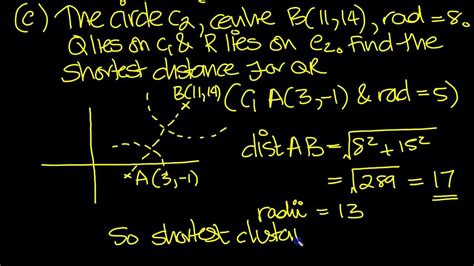 (c) The circle C2, centre B(11,14), rad = 8.
Q lies on C1 & R lies on C2. Find the
shortest distance for QR
B(11,14) (C1 A(3,-1) & rad = 5)
A(3,-1)
dist AB = √8² + 15²
= √289 = 17
radii = 13
So shortest dista